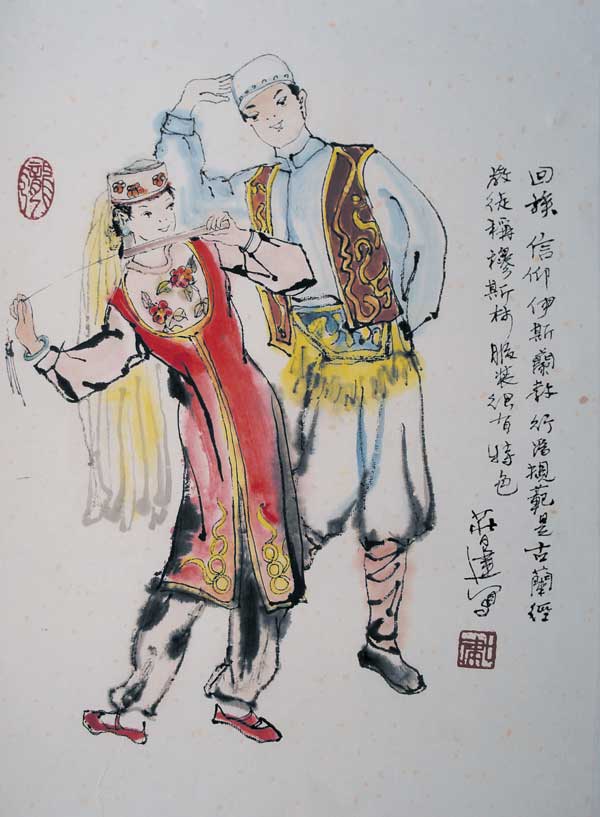 回族 信仰伊斯蘭教 行為規範是古蘭經
教徒稱穆斯林 服裝很有特色